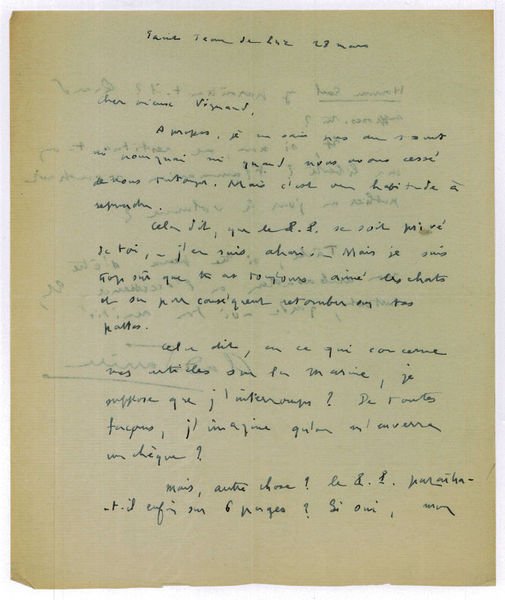 Saint Jean de Luz 23 mars
Cher vieux Vignaud,
A propos, je ne sais pas du tout
ni pourquoi ni quand, nous avons cessé
de nous tutoyer. Mais c'est une habitude à
reprendre.
Cela dit, que le P.P. se soit privé
de toi, – j'en suis ahuri. Mais je suis
trop sûr que tu as toujours aimé les chats
et su par conséquent retomber sur tes
pattes.
Cela dit, en ce qui concerne
mes articles sur la Marine, je
suppose que j'interromps ? De toutes
façons, j'imagine qu'on m'enverra
un chèque ?
Mais, autre chose ? le P.P. paraîtra-
-t-il enfin sur 6 pages ? Si oui, mon